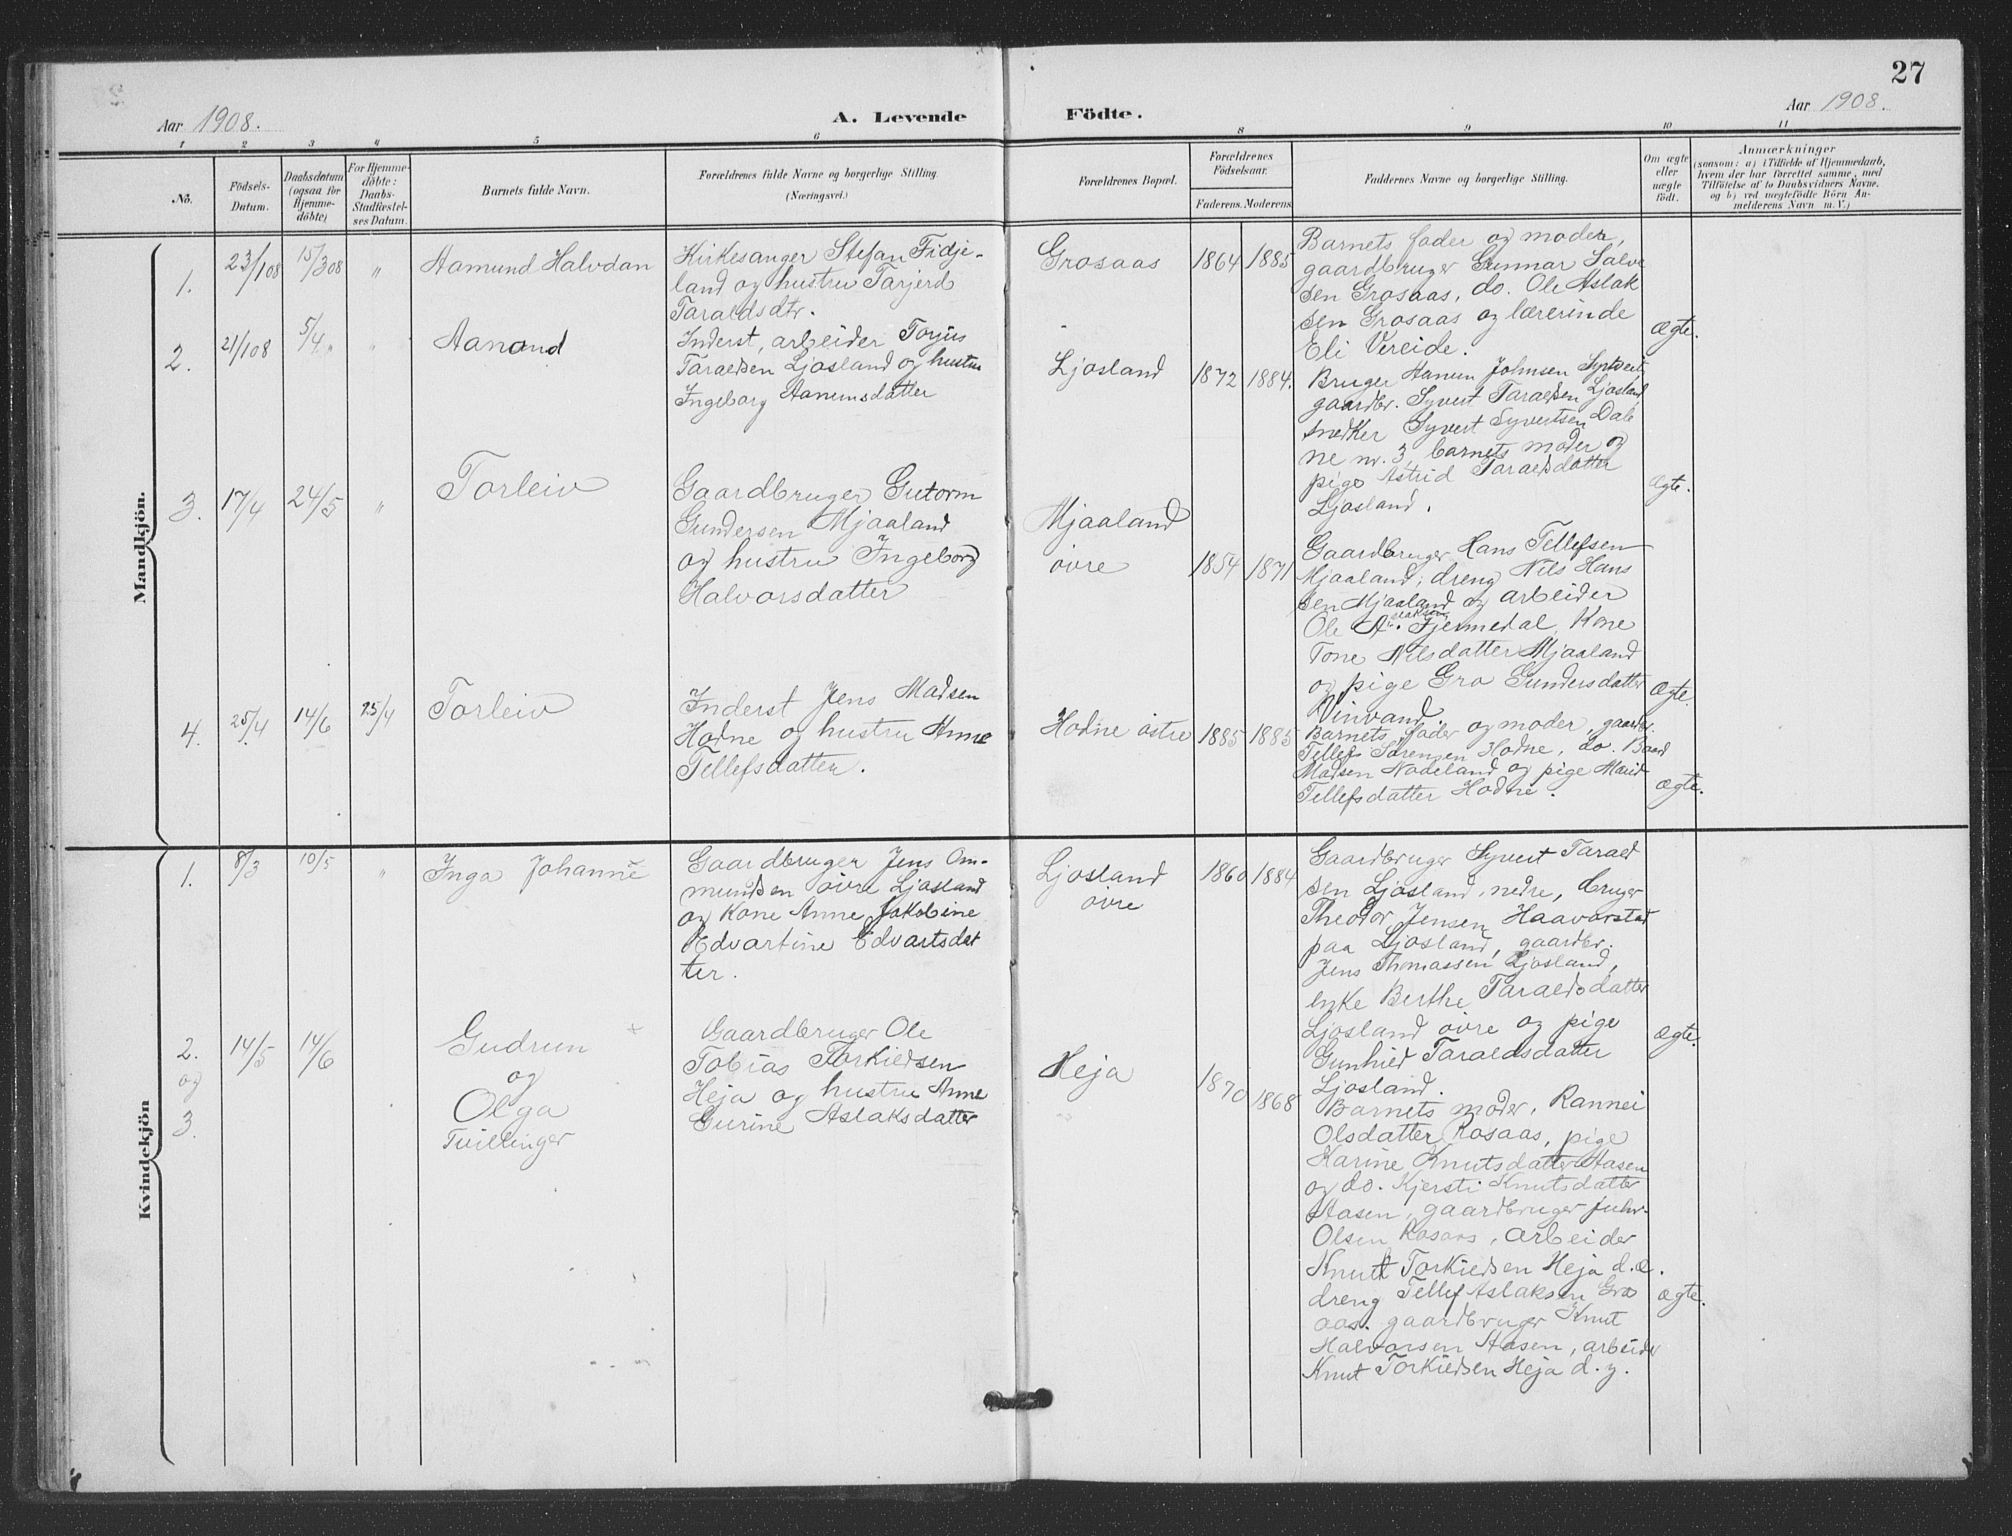 27
Aar 1908.
A. Levende Födte.
Aar 1908.
1 2 3 4 5 6 8 9 10 11
No.
Födsels-
Datum.
Daabsdatum
(ogsaa for
Hjemme-
döbte)
For Hjemme-
döbte:
Daabs-
Stadfæstel-
ses Datum.
Barnets fulde Navn.
Forældrenes fulde Navne og borgerlige Stilling.
(Næringsvei.)
Forældrenes Bopæl.
Forældrenes
Födselsaar.
Faderens. Moderens.
Faddernes Navne og borgerlige Stilling.
Om ægte
eller
uægte
födt.
Anmærkninger
(saasom: a) i Tilfælde af Hjemmedaab,
hvem der har forrettet samme, med
Tilföielse af to Daabsvidners Navne,
og b) ved uægtefödte Börn An-
melderens Navn m. V.)
Mandkjön.
1. 23/1 08 15/3 08 " Aamund Halvdan
Kirkesanger Stefan Fidje-
land og hustru Tarjerd
Taraldsdtr.
Grosaas 1864 1885
Barnets fader og moder,
gaardbruger Gunnar Salve
sen Grosaas, do. Ole Aslak
sen Grosaas og lærerinde
Eli Vereide.
ægte.
2. 21/1 08 5/4 " " Aanond
Inderst, arbeider Torjus
Taraldsen Ljosland og hustru
Ingeborg Aanumsdatter
Ljosland 1872 1884.
Bruger Hanum Johnsen
gaardbr. Syvert Taraldsen Ljosland
snedker Syvert Syvertsen Dale
ne nr. 3, barnets moder og
pige Astrid Taraldsdatter
Ljosland.
ægte.
3. 17/4 24/5 " Torleiv
Gaardbruger Gutorm
Gundersen Mjaaland
og hustru Ingeborg
Halvorsdatter
Mjaaland
övre 1854 1871
Gaardbruger Hans Tellefsen
Mjaaland, dreng Nils Hans
sen Mjaaland og arbeider
Ole A. slaksen Fjermedal, Kone
Tone Nilsdatter Mjaaland
og pige Gro Gundersdatter
Vinvand.
ægte.
4. 25/4 14/6 25/4 Torleiv
Inderst Jens Madsen
Hodne og hustru Anne
Tellefsdatter.
Hodne östre 1885 1885
Barnets fader og moder, gaardbr.
Tellef Sörensen Hodne, do. Baard
Madsen Nodeland og pige Marid
Tellefsdatter Hodne.
ægte.
Kvindekjön
1. 8/3 10/5 " Inga Johanne
Gaardbruger Jens Om-
mundsen övre Ljosland
og Kone Anne Jakobine
Edvartine Edvartsdat
ter.
Ljosland
övre 1860 1884
Gaardbruger Syvert Tarald
sen Ljosland, nedre, bruger
Theodor Jensen Haavorstad
paa Ljosland, gaardbr.
Jens Thomassen Ljosland,
enke Berthe Taraldsdatter
Ljosland övre og pige
Gunhild Taraldsdatter
Ljosland.
ægte.
2. 14/5 14/6 Gudrun
og
og
3. Olga
Tvillinger
Gaardbruger Ole
Tobias Torkildsen
Heja og hustru Anne
Gurine Aslaksdatter
Heja 1870 1868
Barnets moder, Rannei
Olsdatter Rosaas, pige
Karine Knutsdatter Aasen
og do. Kjersti Knutsdatter
Aasen, gaardbruger
Olsen Rosaas, arbeider
Knut Torkildsen Heja d. æ.
dreng Tellef Aslaksen Gros
aas. gaardbruger Knut
Halvorsen Aasen, arbeider
Knut Torkildsen Heja d. y.
ægte.